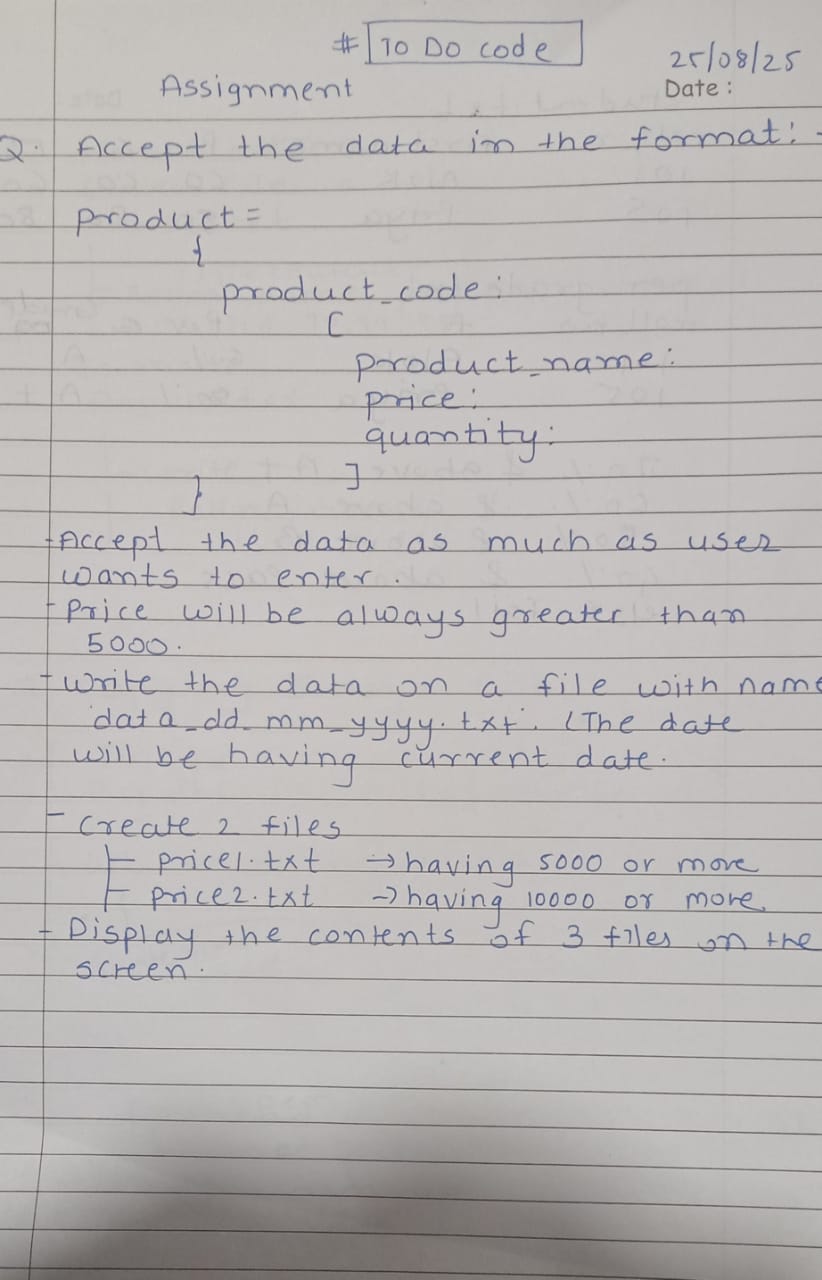 # To Do code
25/08/25
Assignment
Date :
Q. Accept the data in the format: -
product =
{
product_code:
[
product_name:
price:
quantity:
]
}
- Accept the data as much as user
wants to enter.
- Price will be always greater than
5000.
- Write the data on a file with name
data_dd_mm_yyyy.txt. (The date
will be having current date.
- Create 2 files
price1.txt → having 5000 or more
price2.txt → having 10000 or more.
- Display the contents of 3 files on the
screen.